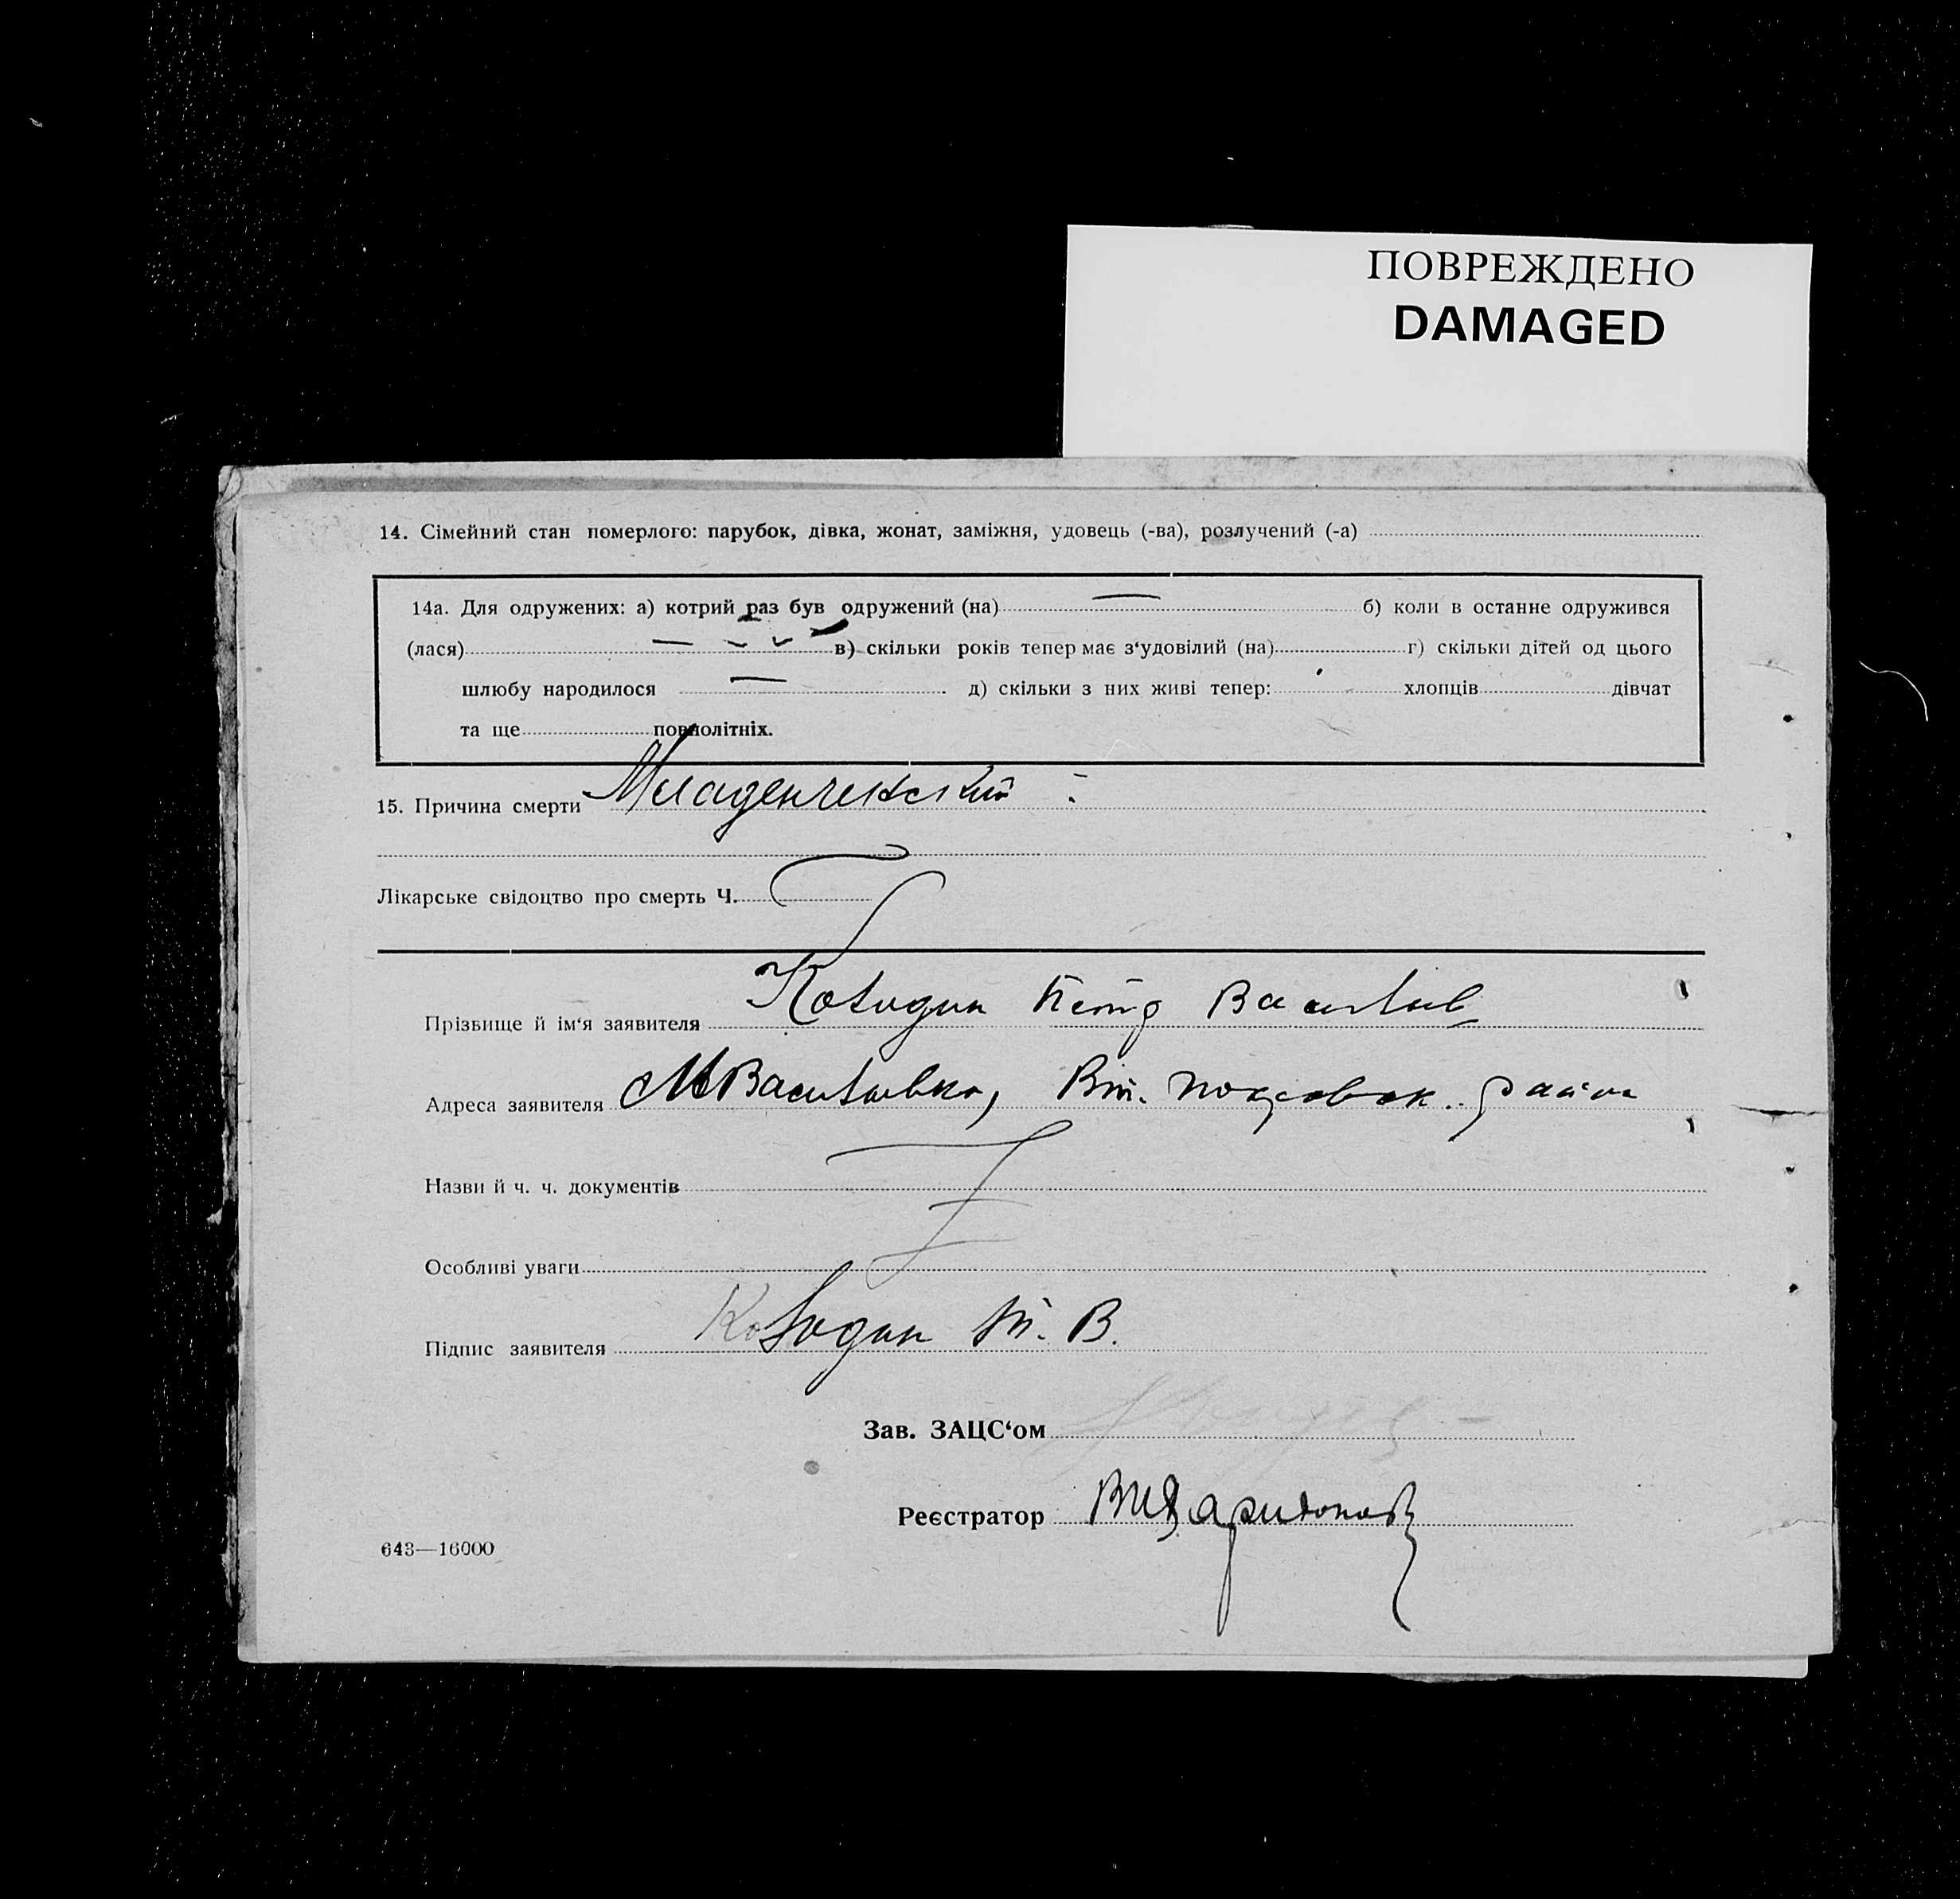 ПОВРЕЖДЕНО
DAMAGED
14. Сімейний стан померлого: парубок, дівка, жонат, заміжня, удовець (-ва), розлучений (-а)
14а. Для одружених: а) котрий раз був одружений (на) — б) коли в останнє одружився
(лася) — в) скільки років тепер має з‘удовілий (на) г) скільки дітей од цього
шлюбу народилося — д) скільки з них живі тепер: хлопців дівчат
та ще повнолітніх.
15. Причина смерти Младенческий
Лікарське свідоцтво про смерть Ч.
Прізвище й ім‘я заявителя Колодин Петр Васильев
Адреса заявителя Васильевка, район
Назви й ч. ч. документів
Особливі уваги
Підпис заявителя Колодин П. В.
Зав. ЗАЦС‘ом
Реєстратор
643—16000